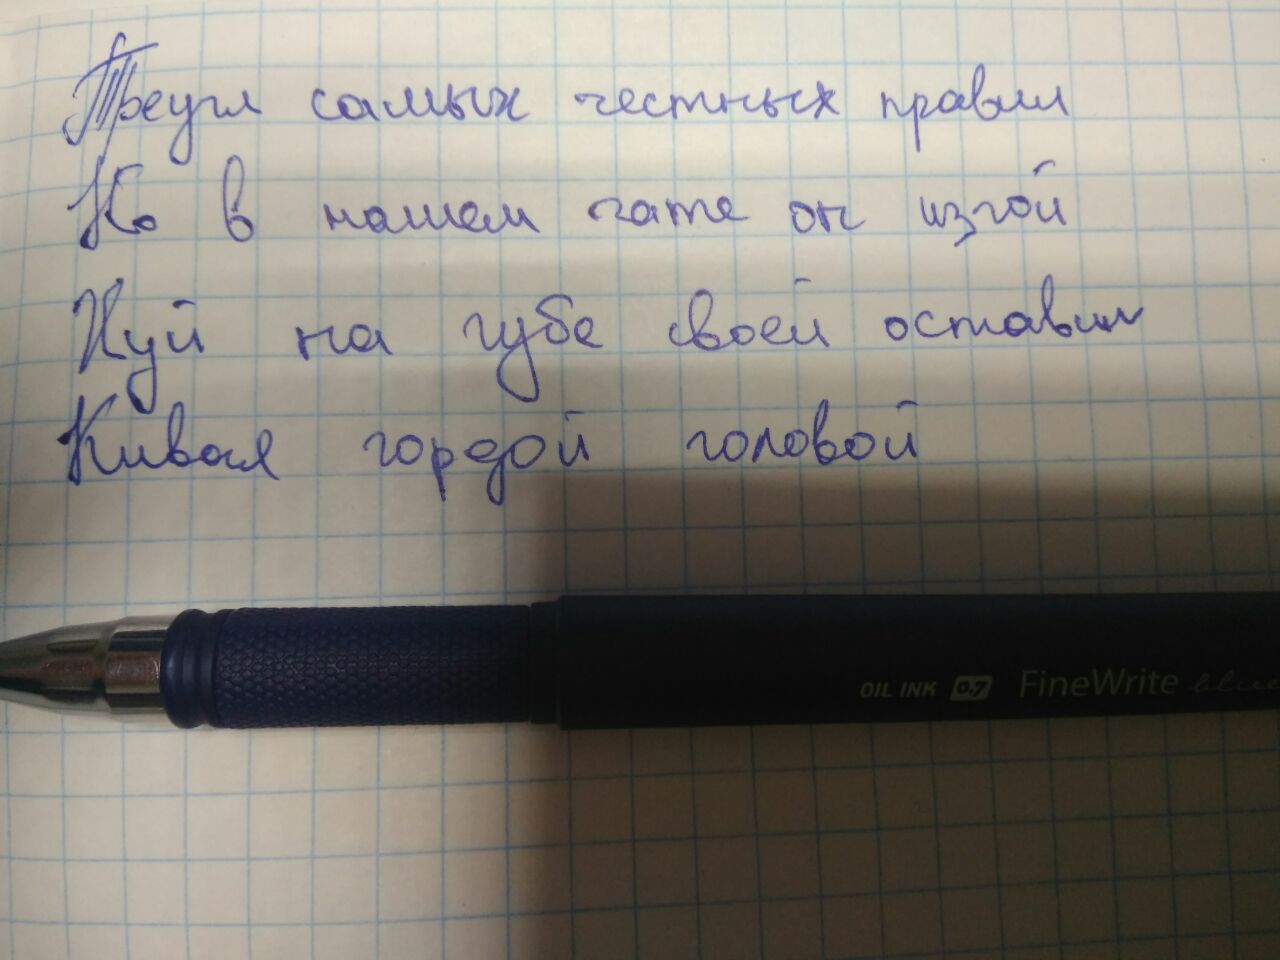 Треугл самых честных правил
Но в нашем чате он изгой
Хуй на губе своей оставил
Кивая гордой головой
OIL INK 0.7 FineWrite blue